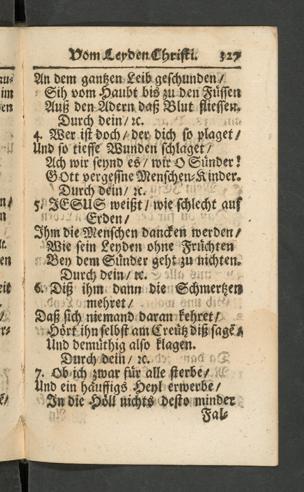 Vom Leyden Christi. 327
An dem gantzen Leib geschunden /
Sih vom Haubt bis zu den Füssen
Auß den Adern daß Blut fliessen.
Durch dein / ꝛc.
4. Wer ist doch / der dich so plaget /
Und so tieffe Wunden schlaget /
Ach wir seynd es / wir O Sünder!
GOtt vergessne Menschen-Kinder.
Durch dein / ꝛc.
5. JESUS weißt / wie schlecht auf
Erden /
Ihm die Menschen dancken werden /
Wie sein Leyden ohne Früchten
Bey dem Sünder geht zu nichten.
Durch dein / ꝛc.
6. Diß ihm dann die Schmertzen
mehret /
Daß sich niemand daran kehret /
Hört ihn selbst am Creutz diß sagē /
Und demüthig also klagen.
Durch dein / ꝛc.
7. Ob ich zwar für alle sterbe /
Und ein häuffigs Heyl erwerbe /
In die Höll nichts desto minder
Fal-